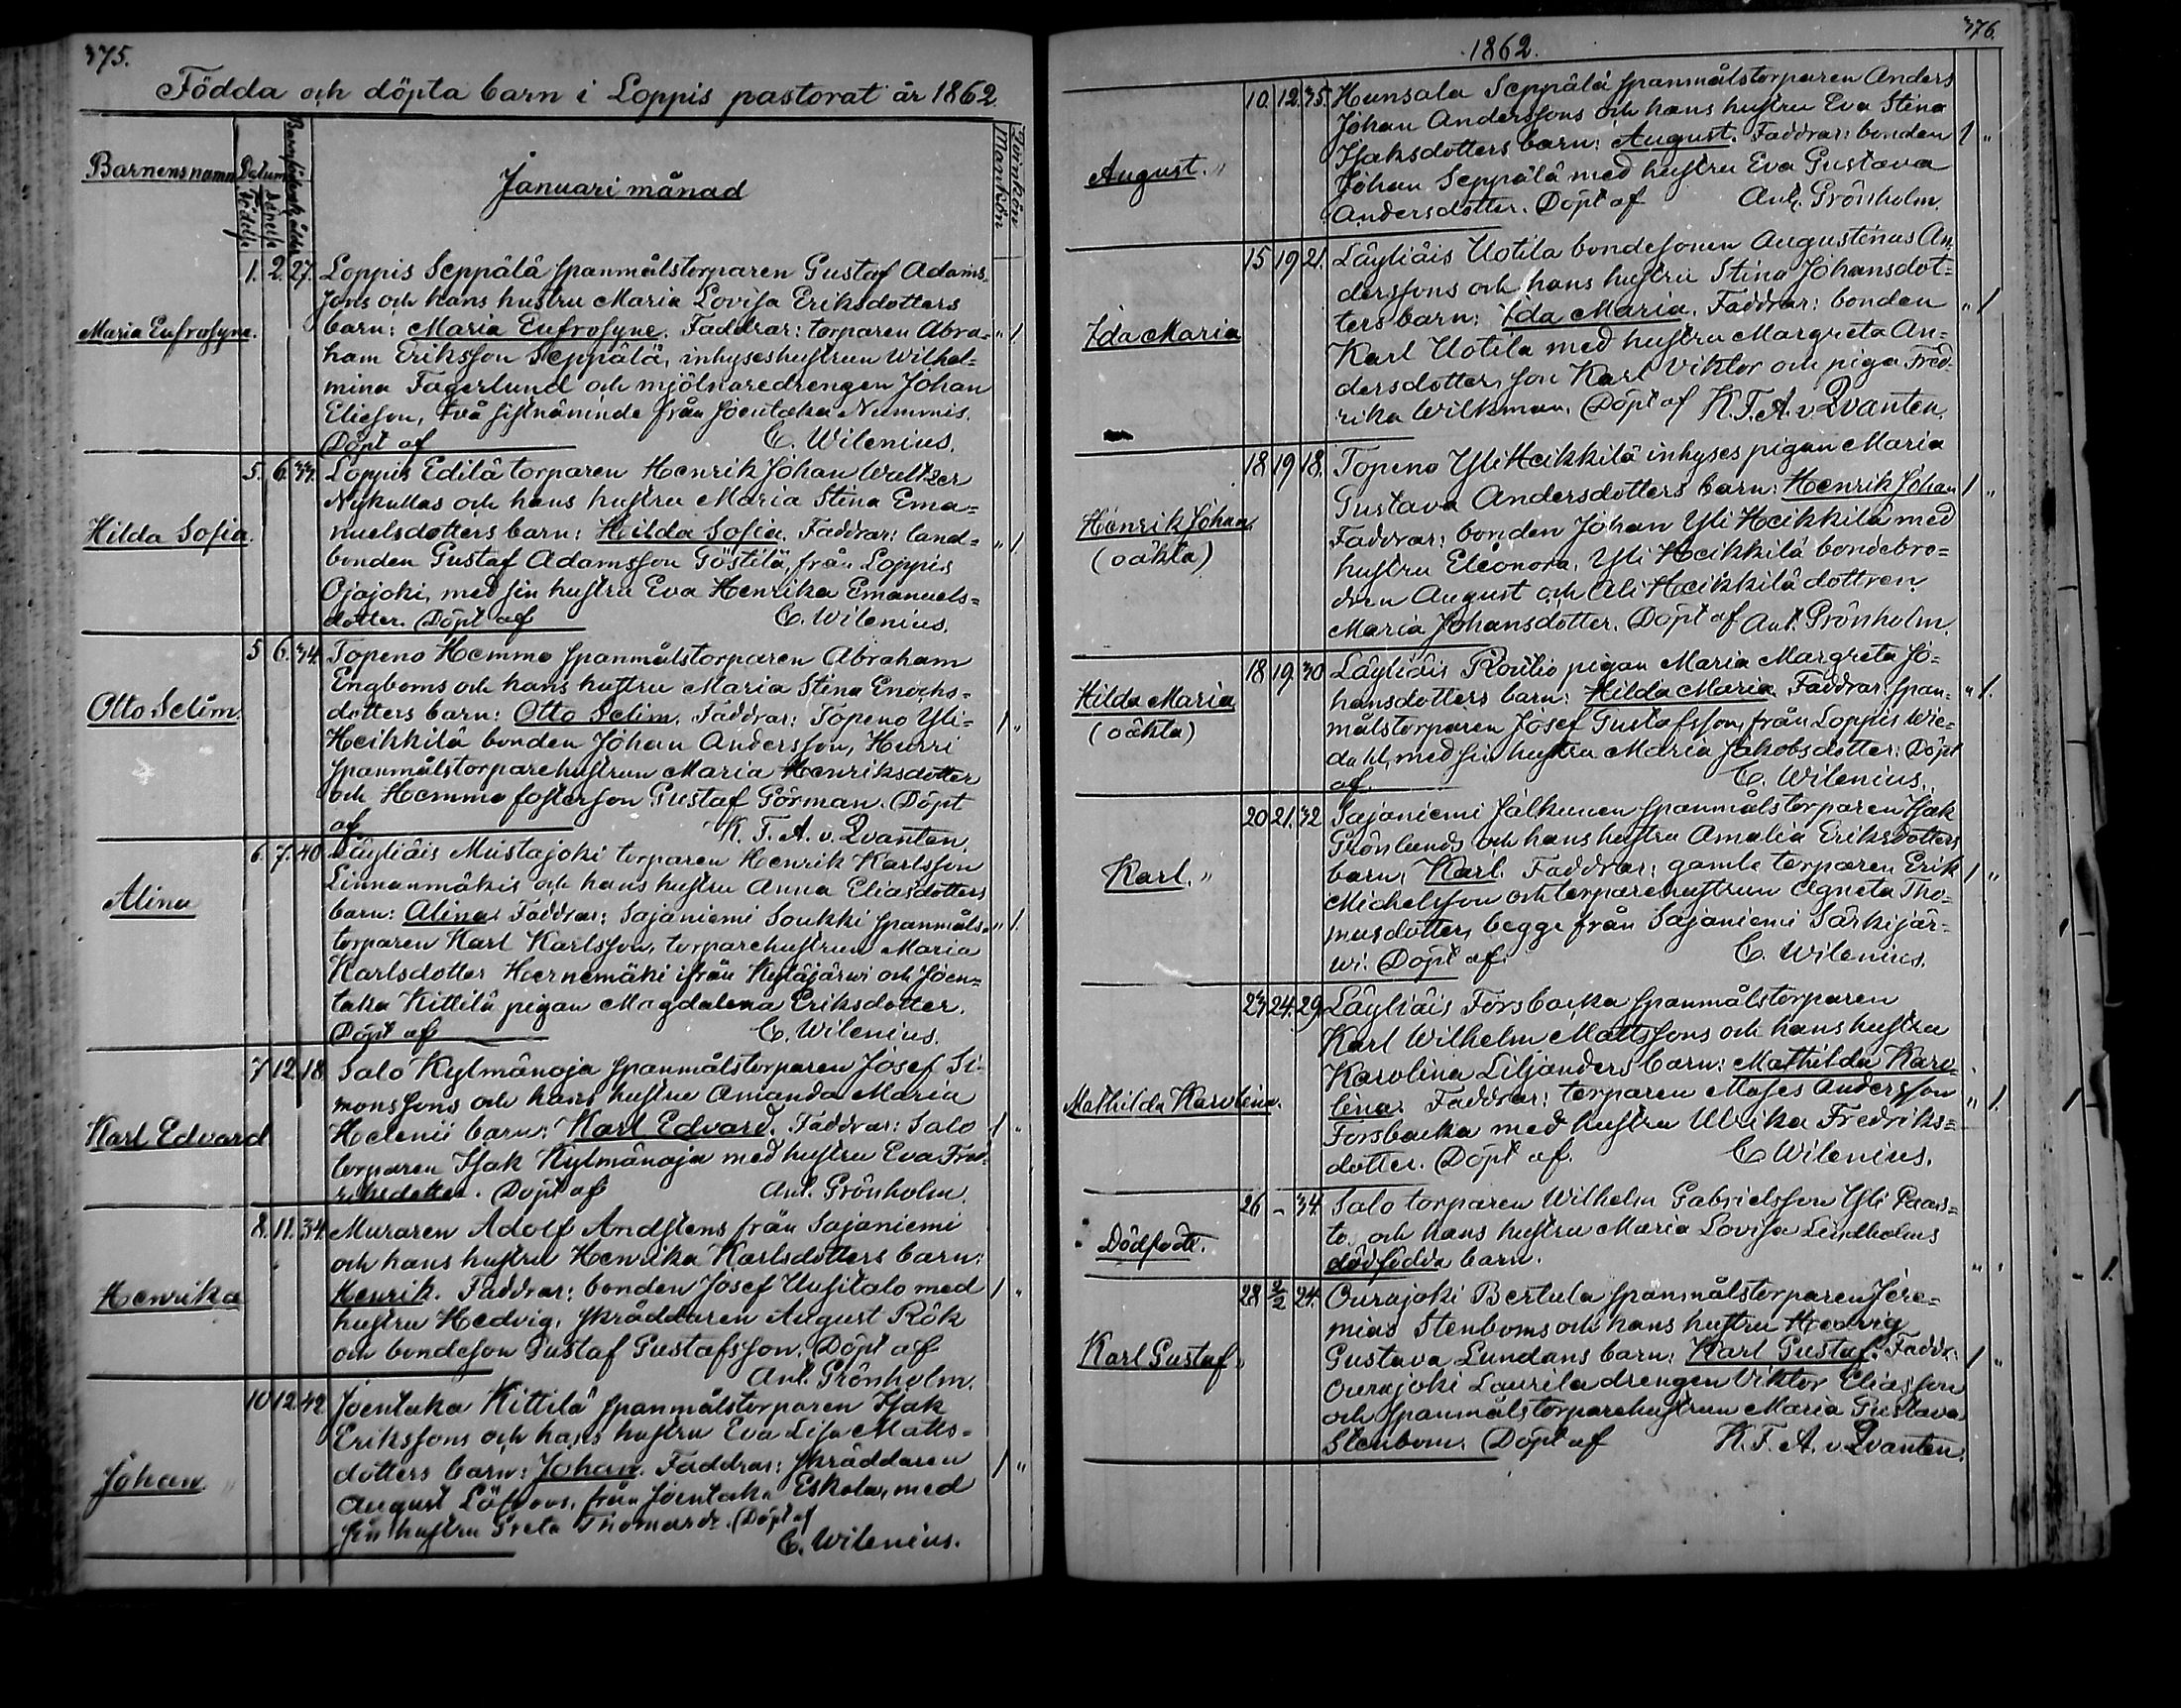 375.
Födda och döpta barn i Loppis pastorat år 1862
Barnens namn
Datum
Födelse
Döpelse
Mankön
Qvinkön
Januari månad
Maria Eufrosyne.
1. 2. 27. Loppis Seppälä spanmålstorparen Gustaf Adams-
sons och hans hustru Maria Lovisa Eriksdotters
barn: Maria Eufrosyne. Faddrar: torparen Abra- " 1
ham Eriksson Seppälä, inhyseshustrun Wilhel=
mina Fagerlund och mjölnaredrengen Johan
Elieson, två sistnäminde från Joentaka Nummis.
Döpt af C. Wilenius.
Hilda Sofia.
5. 6. 33. Loppis Edilä torparen Henrik Johan Weltzer
Nykullas och hans hustru Maria Stina Ema=
nuelsdotters barn: Hilda Sofia. Faddrar: land= " 1
bonden Gustaf Adamsson Göstilä, från Loppis
Ojajoki, med sin hustru Eva Henrika Emanuels=
dotter. Döpt af C. Wilenius.
Otto Selim.
5 6. 34. Topeno Hemmo spanmålstorparen Abraham
Engboms och hans hustru Maria Stina Enochs=
dotters barn: Otto Selim. Faddrar: Topeno Yli= 1 "
Heikkilä bonden Johan Andersson, Hurri
spanmålstorparehustrun Maria Henriksdotter
och Hemmo fosterson Gustaf Görman. Döpt
af K. F. A. v. Qvanten.
Alina
6. 7. 40. Läyliäis Mustajoki torparen Henrik Karlsson
Linnanmäkis och hans hustru Anna Eliasdotters
barn: Alina. Faddrar: Sajaniemi Soukki spanmåls= " 1.
torparen Karl Karlsson, torparehustrun Maria
Karlsdotter Hernemäki ifrån Kytäjärwi och Joen=
taka Kittilä pigan Magdalena Eriksdotter.
Döpt af C. Wilenius.
Karl Edvard
7 12. 18. Salo Kylmänoja spanmålstorparen Josef Si-
monssons och hans hustru Amanda Maria
Helenii barn: Karl Edvard. Faddrar: Salo 1 "
torparen Isak Kylmänoja med hustru Eva Fred-
riksdotter. Döpt af Ant. Grönholm.
Henrika
8. 11. 34. Muraren Adolf Andstens från Sajaniemi
och hans hustru Henrika Karlsdotters barn:
Henrik. Faddrar: bonden Josef Uusitalo med 1 "
hustru Hedvig, skräddaren August Rök
och bondeson Gustaf Gustafsson. Döpt af
Ant. Grönholm.
Johan. "
10 12 42 Joentaka Kittilä spanmålstorparen Isak
Erikssons och hans hustru Eva Lisa Matts=
dotters barn: Johan. Faddrar: skräddaren 1 "
August Löfroos, från Joentaka Eskola, med
sin hustru Greta Thomasdr. Döpt af
C. Wilenius.
1862.
376.
August. "
10. 12. 35. Hunsala Seppälä spanmålstorparen Anders
Johan Anderssons och hans hustru Eva Stina
Isaksdotters barn: August. Faddrar: bonden 1 "
Johan Seppälä med hustru Eva Gustava
Andersdotter. Döpt af Ant. Grönholm.
Ida Maria
15 19 21. Läyliäis Uotila bondesonen Augustinus An-
derssons och hans hustru Stina Johansdot=
ters barn: Ida Maria. Faddrar: bonden " 1
Karl Uotila med hustru Margreta An=
dersdotter, son Karl Viktor och piga Fred-
rika Wilkman. Döpt af K. F. A. v. Qvanten.
Henrik Johan.
(oäkta)
18 19 18. Topeno Yli Heikkilä inhyses pigan Maria
Gustava Andersdotters barn: Henrik Johan 1 "
Faddrar: bonden Johan Yli Heikkilä med
hustru Eleonora, Yli Heikkilä bondebro=
dren August och Ali Heikkilä dottren
Maria Johansdotter. Döpt af Ant. Grönholm.
Hilda Maria
(oäkta)
18 19. 30 Läyliäis Routio pigan Maria Margreta Jo=
hansdotters barn: Hilda Maria. Faddrar: span= " 1.
målstorparen Josef Gustafsson, från Loppis Wie=
dahl, med sin hustru Maria Jakobsdotter: Döpt
af C. Wilenius.
Karl. "
20 21. 32 Sajaniemi Jalkunen spanmålstorparen Isak
Grönlunds och hans hustru Amalia Eriksdotters
barn: Karl. Faddrar: gamle torparen Erik 1 "
Michelsson och torparehustrun Agneta Tho-
masdotter, begge från Sajaniemi Särkijär=
wi. Döpt af. C. Wilenius.
Mathilda Karolina.
23 24. 29. Läyliäis Forsbacka spanmålstorparen
Karl Wilhelm Mattssons och hans hustru
Karolina Liljanders barn: Mathilda Karo-
lina. Faddrar: torparen Moses Andersson " 1.
Forsbacka med hustru Ulrika Fredriks=
dotter. Döpt af. C Wilenius.
Dödfödt.
26 – 34. Salo torparen Wilhelm Gabrielsson Yli Paars=
to, och hans hustru Maria Lovisa Lindholms
dödfödda barn.
Karl Gustaf "
28 2/2 24. Ourajoki Bertula spanmålstorparen Jere=
mias Stenboms och hans hustru Hedvig
Gustava Lundans barn: Karl Gustaf. Faddr: 1 "
Ourajoki Laurila drengen Viktor Eliasson
och spanmålstorparehustrun Maria Gustava
Stenbom. Döpt af K. F. A. v Qvanten.